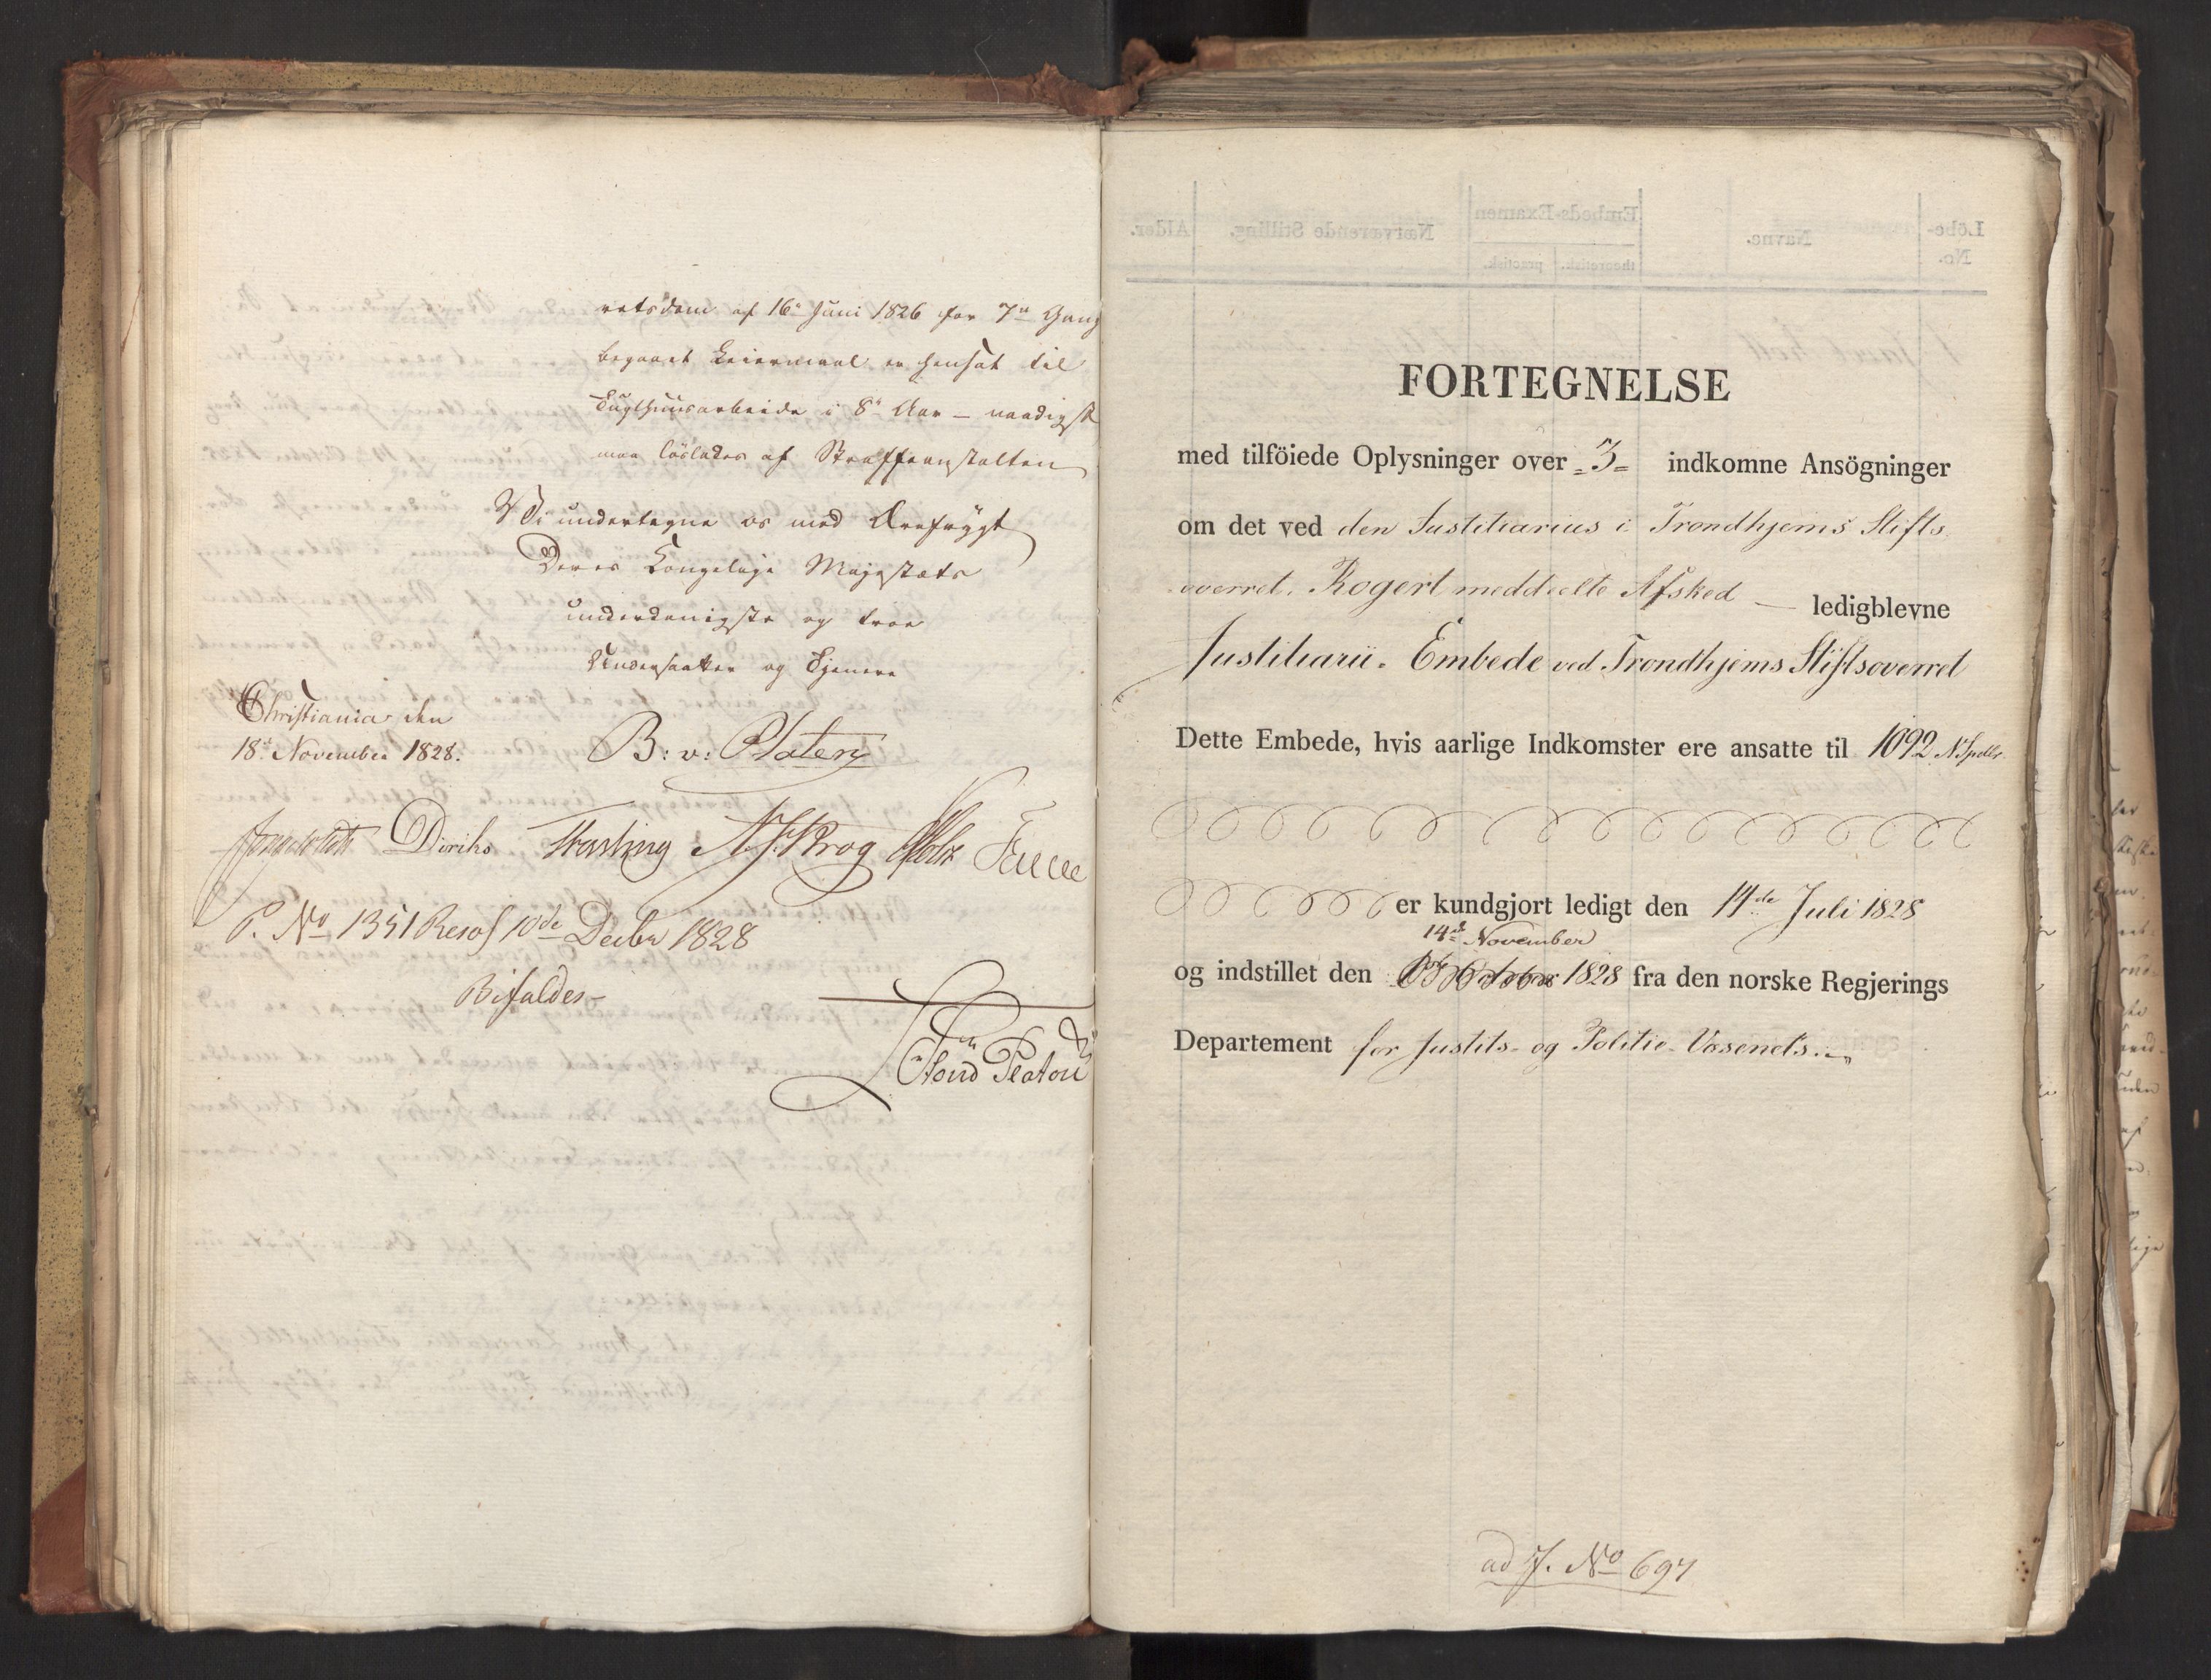 retsdom af 16de Juni 1826 for 7de Gang
begaaet Leiermaal er hensat til
Tugthuusarbeide i 8te Aar — naadigst
maa løslades af Straffeanstalten
Vi undertegne os med Ærefrygt
Deres Kongelige Majestæts
underdanigste og troe
Undersaatter og Tjenere
Christiania den
18de November 1828.
B: v: Platen
Diriks Krog Holst
P. No 1351 Resol 10de Decbr 1828
Bifaldes
FORTEGNELSE
med tilföiede Oplysninger over = 3 = indkomne Ansögninger
om det ved den Justitiarius i Trondhjems Stifts
overret, Rogert meddeelte Afsked — ledigblevne
Justitiarii-Embede ved Trondhjems Stiftsoverret
Dette Embede, hvis aarlige Indkomster ere ansatte til 1092 Spdlr.
er kundgjort ledigt den 14de Juli 1828
14de November
og indstillet den October 1828 fra den norske Regjerings
Departement for Justits- og Politie-Væsenets.
ad J. No 697
Löbe-No.
Navne.
Embeds-Examen
theoretisk. practisk.
Nærværende Stilling.
Alder.